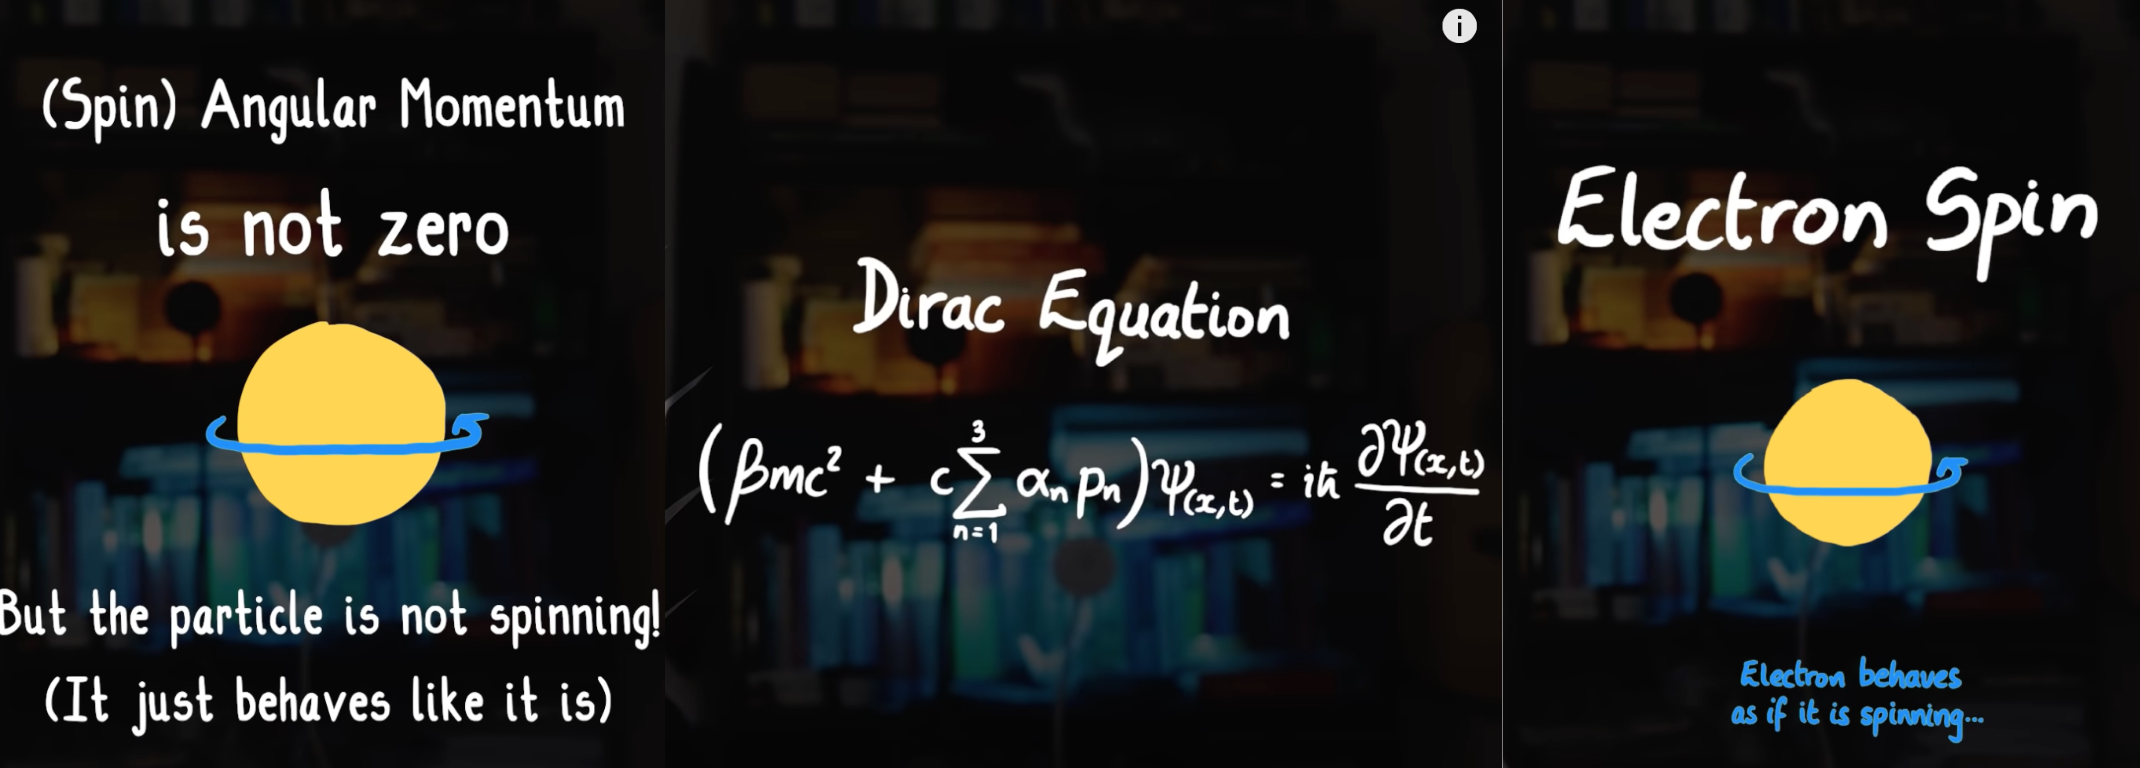 (Spin) Angular Momentum
is not zero
But the particle is not spinning!
(It just behaves like it is)
i
Dirac Equation
(βmc² + c∑³ₙ₌₁ αₙpₙ)Ψ(x,t) = iħ ∂Ψ(x,t)/∂t
Electron Spin
Electron behaves
as if it is spinning...